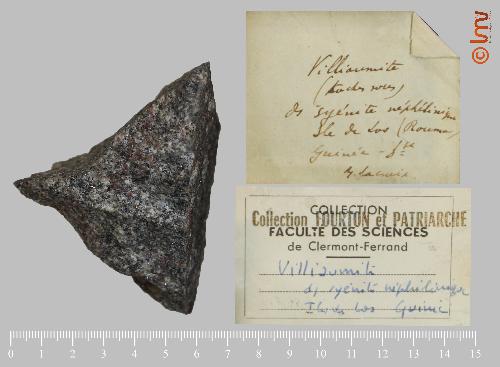 lmv
Villiaumite
(taches roses)
ds syénite néphélinique
Ile de Los (Rouma)
Guinée - fse
COLLECTION
Collection TOURTON et PATRIARCHE
FACULTÉ DES SCIENCES
de Clermont-Ferrand
Villiaumite
ds syénite néphélinique
Iles de Los Guinée
0 1 2 3 4 5 6 7 8 9 10 11 12 13 14 15